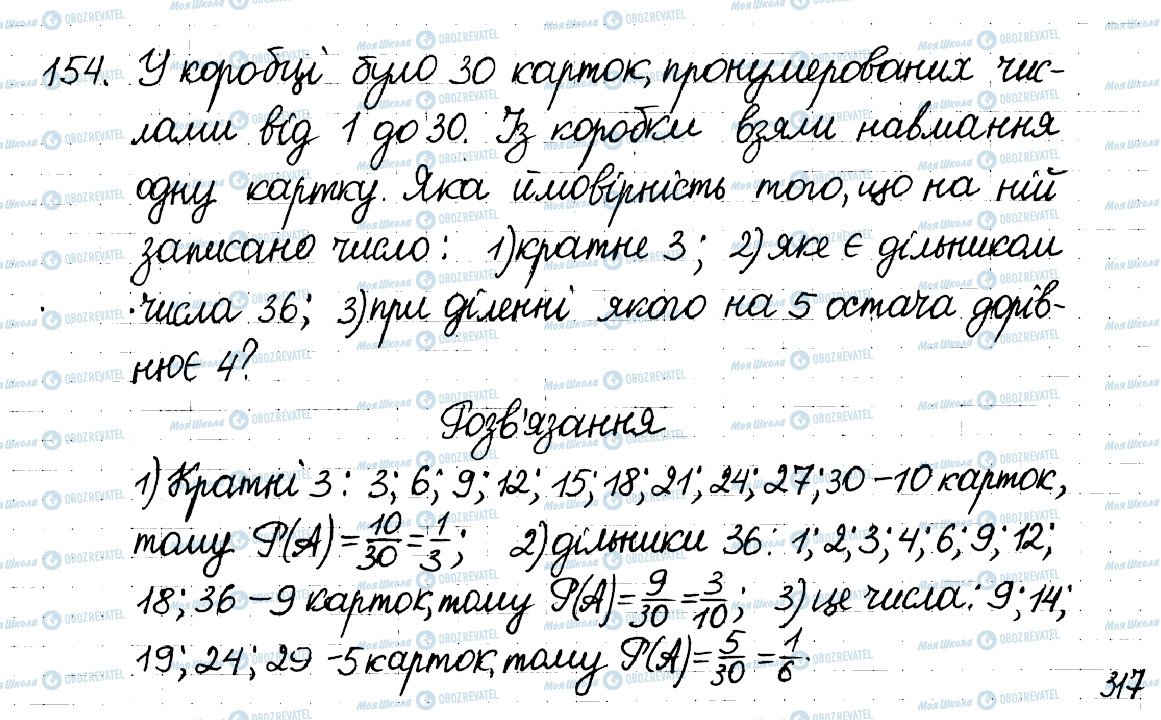 154. У коробці було 30 карток, пронумерованих чис-
лами від 1 до 30. Із коробки взяли навмання
одну картку. Яка ймовірність того, що на ній
записано число: 1) кратне 3; 2) яке є дільником
числа 36; 3) при діленні якого на 5 остача дорів-
нює 4?
Розв'язання
1) Кратні 3: 3; 6; 9; 12; 15; 18; 21; 24; 27; 30 – 10 карток,
тому P(A) = 10/30 = 1/3; 2) дільники 36: 1; 2; 3; 4; 6; 9; 12;
18; 36 – 9 карток, тому P(A) = 9/30 = 3/10; 3) це числа: 9; 14;
19; 24; 29 – 5 карток, тому P(A) = 5/30 = 1/6.
317